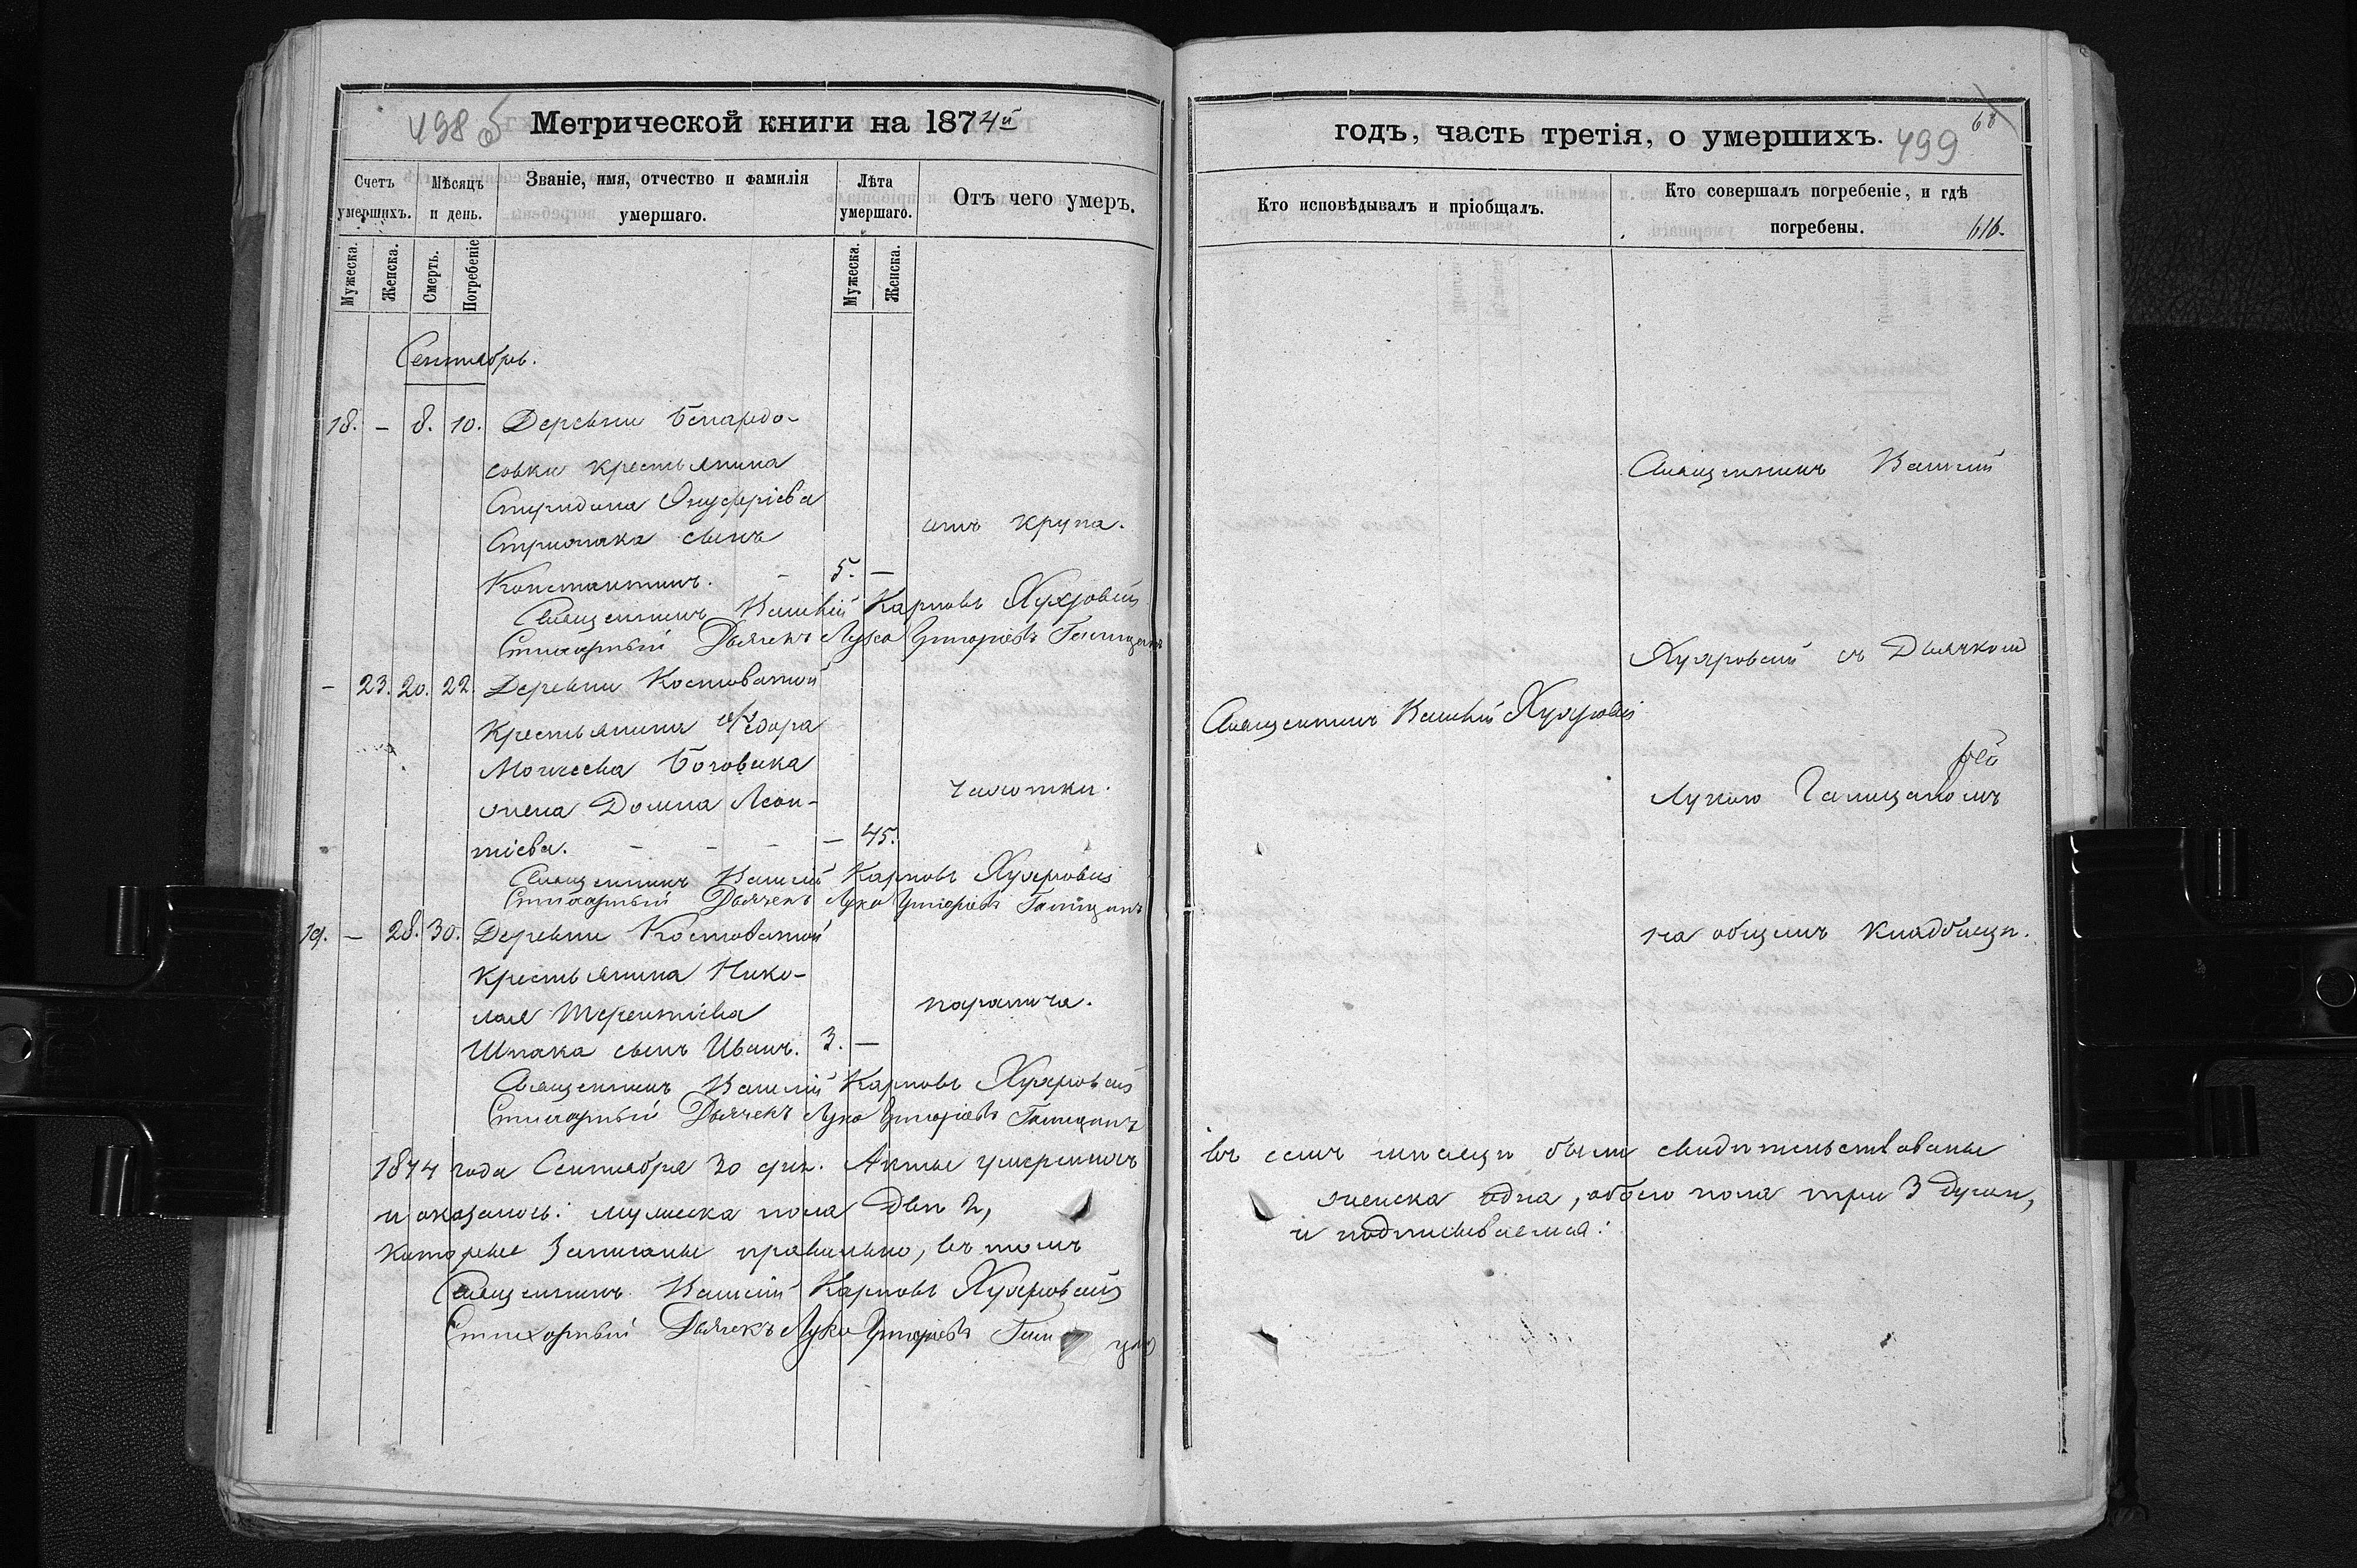 498 об
Метрической книги на 1874й
Счетъ умершихъ.
Мѣсяцъ и день.
Званіе, имя, отчество и фамилія умершаго.
Лѣта умершаго.
Отъ чего умеръ.
Мужеска.
Женска.
Смерть.
Погребеніе
Мужеска.
Женска.
Сентябрь.
18. – 8. 10. Деревни Бенардо-
совки крестьянина
Спиридона Онуфріева
сынъ
отъ крупа.
Константинъ. – 5. –
Священникъ Василій Карповъ
Стихарный Дьячекъ Лука Григоріевъ Галицанъ
– 23. 20. 22. Деревни Костоватой
крестьянина Ѳедора
Моисеева Боговика
жена Домна Леон-
чахотки.
тіева. – – – – 45.
Священникъ Василій Карповъ
Стихарный Дьячекъ Лука Григоріевъ Галицанъ
19. – 28. 30. Деревни Костоватой
крестьянина Нико-
лая Терентіева
паралича.
Шпака сынъ Иванъ. 3. –
Священникъ Василій Карповъ
Стихарный Дьячекъ Лука Григоріевъ Галицанъ
1874 года Сентября 30 дня. Акты умершихъ
и оказалось: мужеска пола два 2,
которые записаны правильно, въ томъ
Священникъ Василій Карповъ
Стихарный Дьячекъ Лука Григоріевъ
годъ, часть третія, о умершихъ.
499
68
Кто исповѣдывалъ и пріобщалъ.
Кто совершалъ погребеніе, и гдѣ погребены.
616.
Священникъ Василій
съ Дьячкомъ
Священникъ Василій
Лукою Галицаномъ
на общемъ кладбищѣ.
въ семъ мѣсяцѣ были свидѣтельствованы
женска одна, обоего пола три 3 души,
и подписываемся: